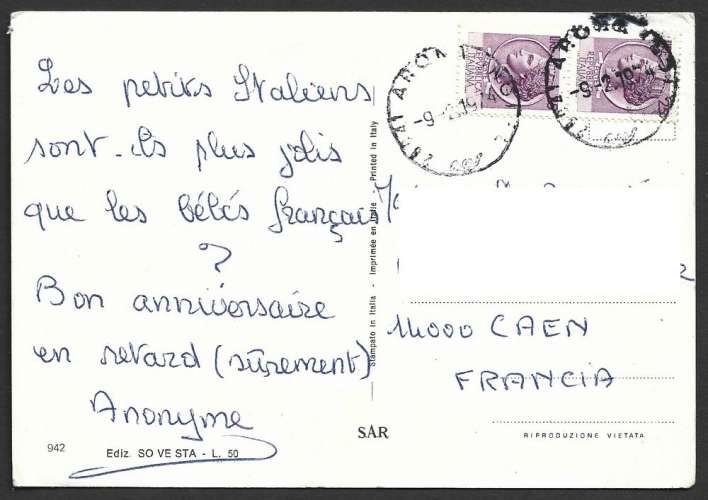 Les petits Italiens
sont-ils plus jolis
que les bébés français
?
Bon anniversaire
en retard (sûrement)
Anonyme
942
Ediz. SO VE STA - L. 50
Stampato in Italia - Imprimée en Italie - Printed in Italy
SAR
14000 CAEN
FRANCIA
RIPRODUZIONE VIETATA
ARONA
-9-2.19
ARONA
-9-2.19